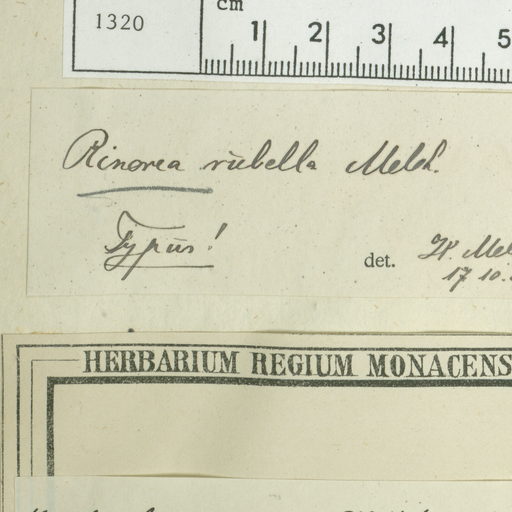 1320
cm
1 2 3 4 5
Rinorea rubella Melch.
Typus!
det. H. Mel
17 10.
HERBARIUM REGIUM MONACENS